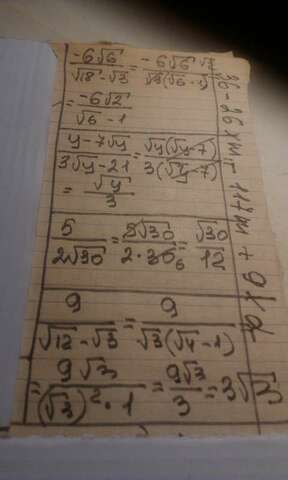 -6√6 / √18 - √3 = -6√6 √3 / √3(√6 - 1)
= -6√2 / √6 - 1
y - 7√y / 3√y - 21 = √y(√y - 7) / 3(√y - 7)
= √y / 3
5 / 2√30 = 5√30 / 2·30 6 = √30 / 12
9 / √12 - √3 = 9 / √3(√4 - 1)
= 9√3 / (√3)²·1 = 9√3 / 3 = 3√3